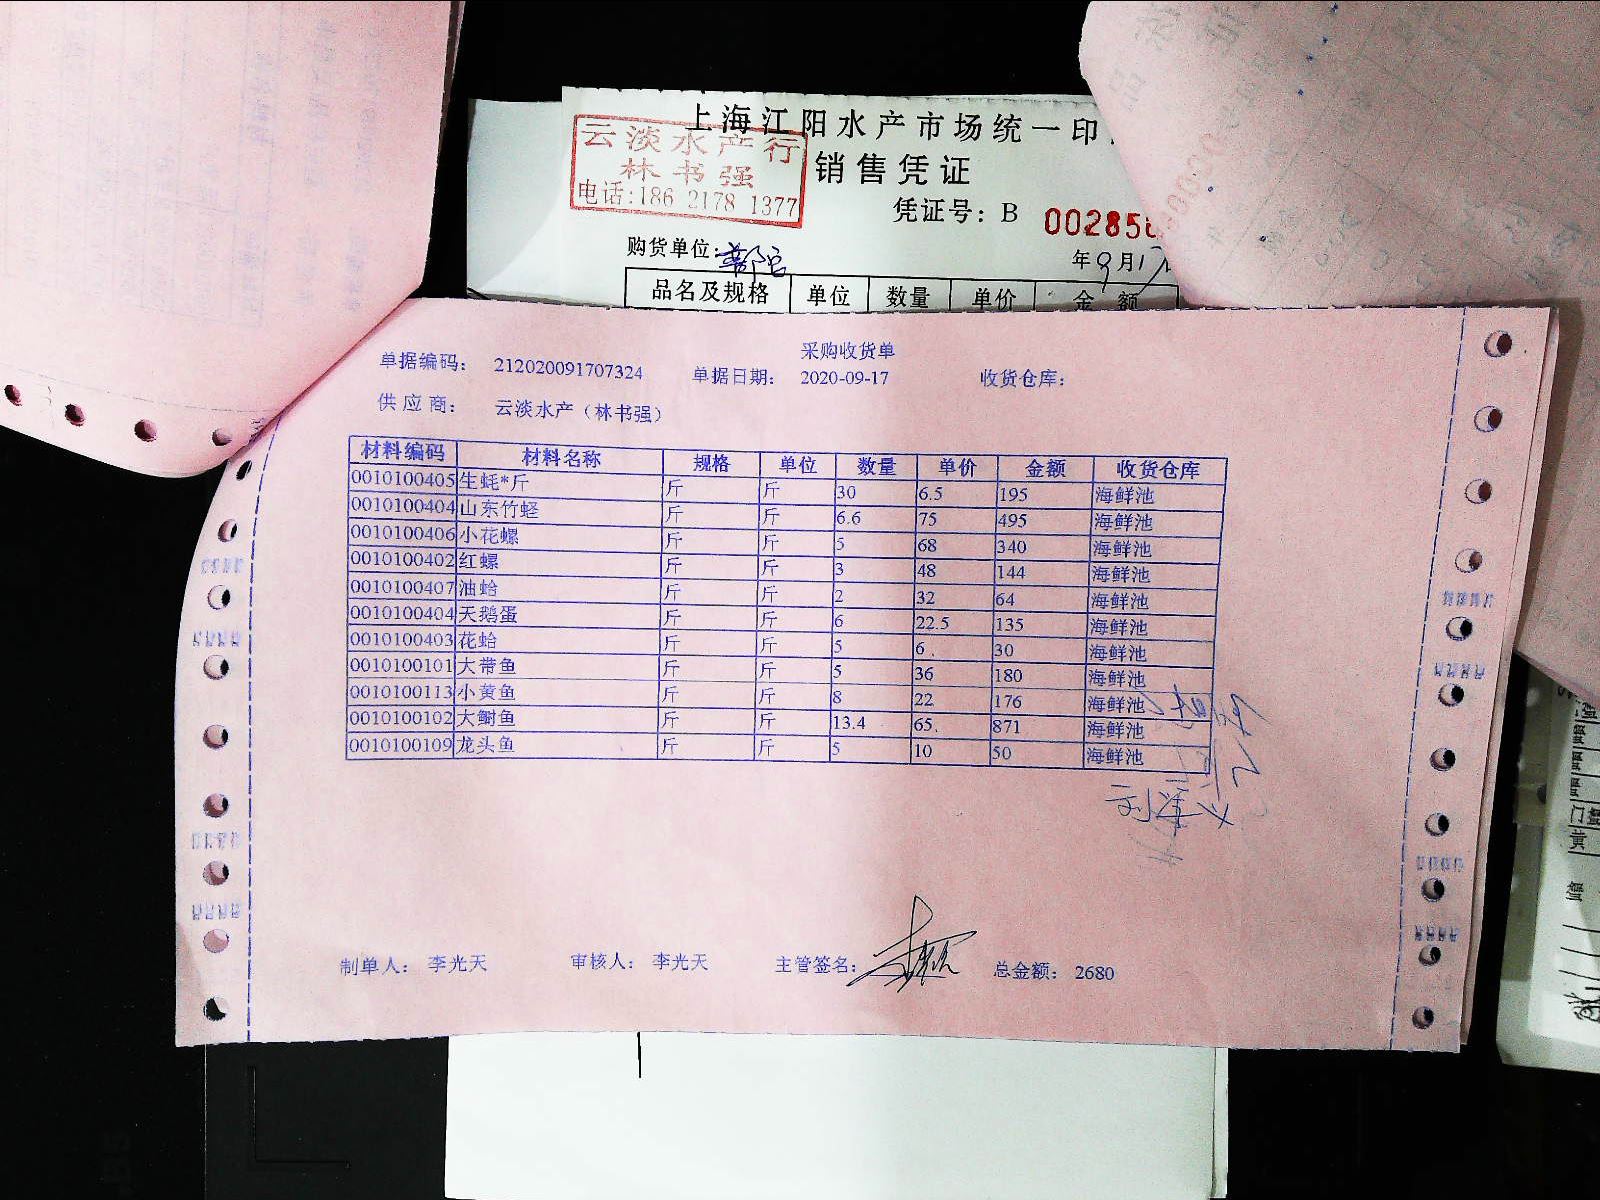 上海江阳水产市场统一印
云淡水产行
林书强
电话:186 2178 1377
销售凭证
凭证号: B 00285
购货单位:
年9月17日
品名及规格 单位 数量 单价 金额
采购收货单
单据编码: 212020091707324 单据日期: 2020-09-17 收货仓库:
供应商: 云淡水产（林书强）
材料编码 材料名称 规格 单位 数量 单价 金额 收货仓库
0010100405 生蚝*斤 斤 斤 30 6.5 195 海鲜池
0010100404 山东竹蛏 斤 斤 6.6 75 495 海鲜池
0010100406 小花螺 斤 斤 5 68 340 海鲜池
0010100402 红螺 斤 斤 3 48 144 海鲜池
0010100407 油蛤 斤 斤 2 32 64 海鲜池
0010100404 天鹅蛋 斤 斤 6 22.5 135 海鲜池
0010100403 花蛤 斤 斤 5 6. 30 海鲜池
0010100101 大带鱼 斤 斤 5 36 180 海鲜池
0010100113 小黄鱼 斤 斤 8 22 176 海鲜池
0010100102 大鲥鱼 斤 斤 13.4 65. 871 海鲜池
0010100109 龙头鱼 斤 斤 5 10 50 海鲜池
制单人: 李光天 审核人: 李光天 主管签名: 总金额: 2680